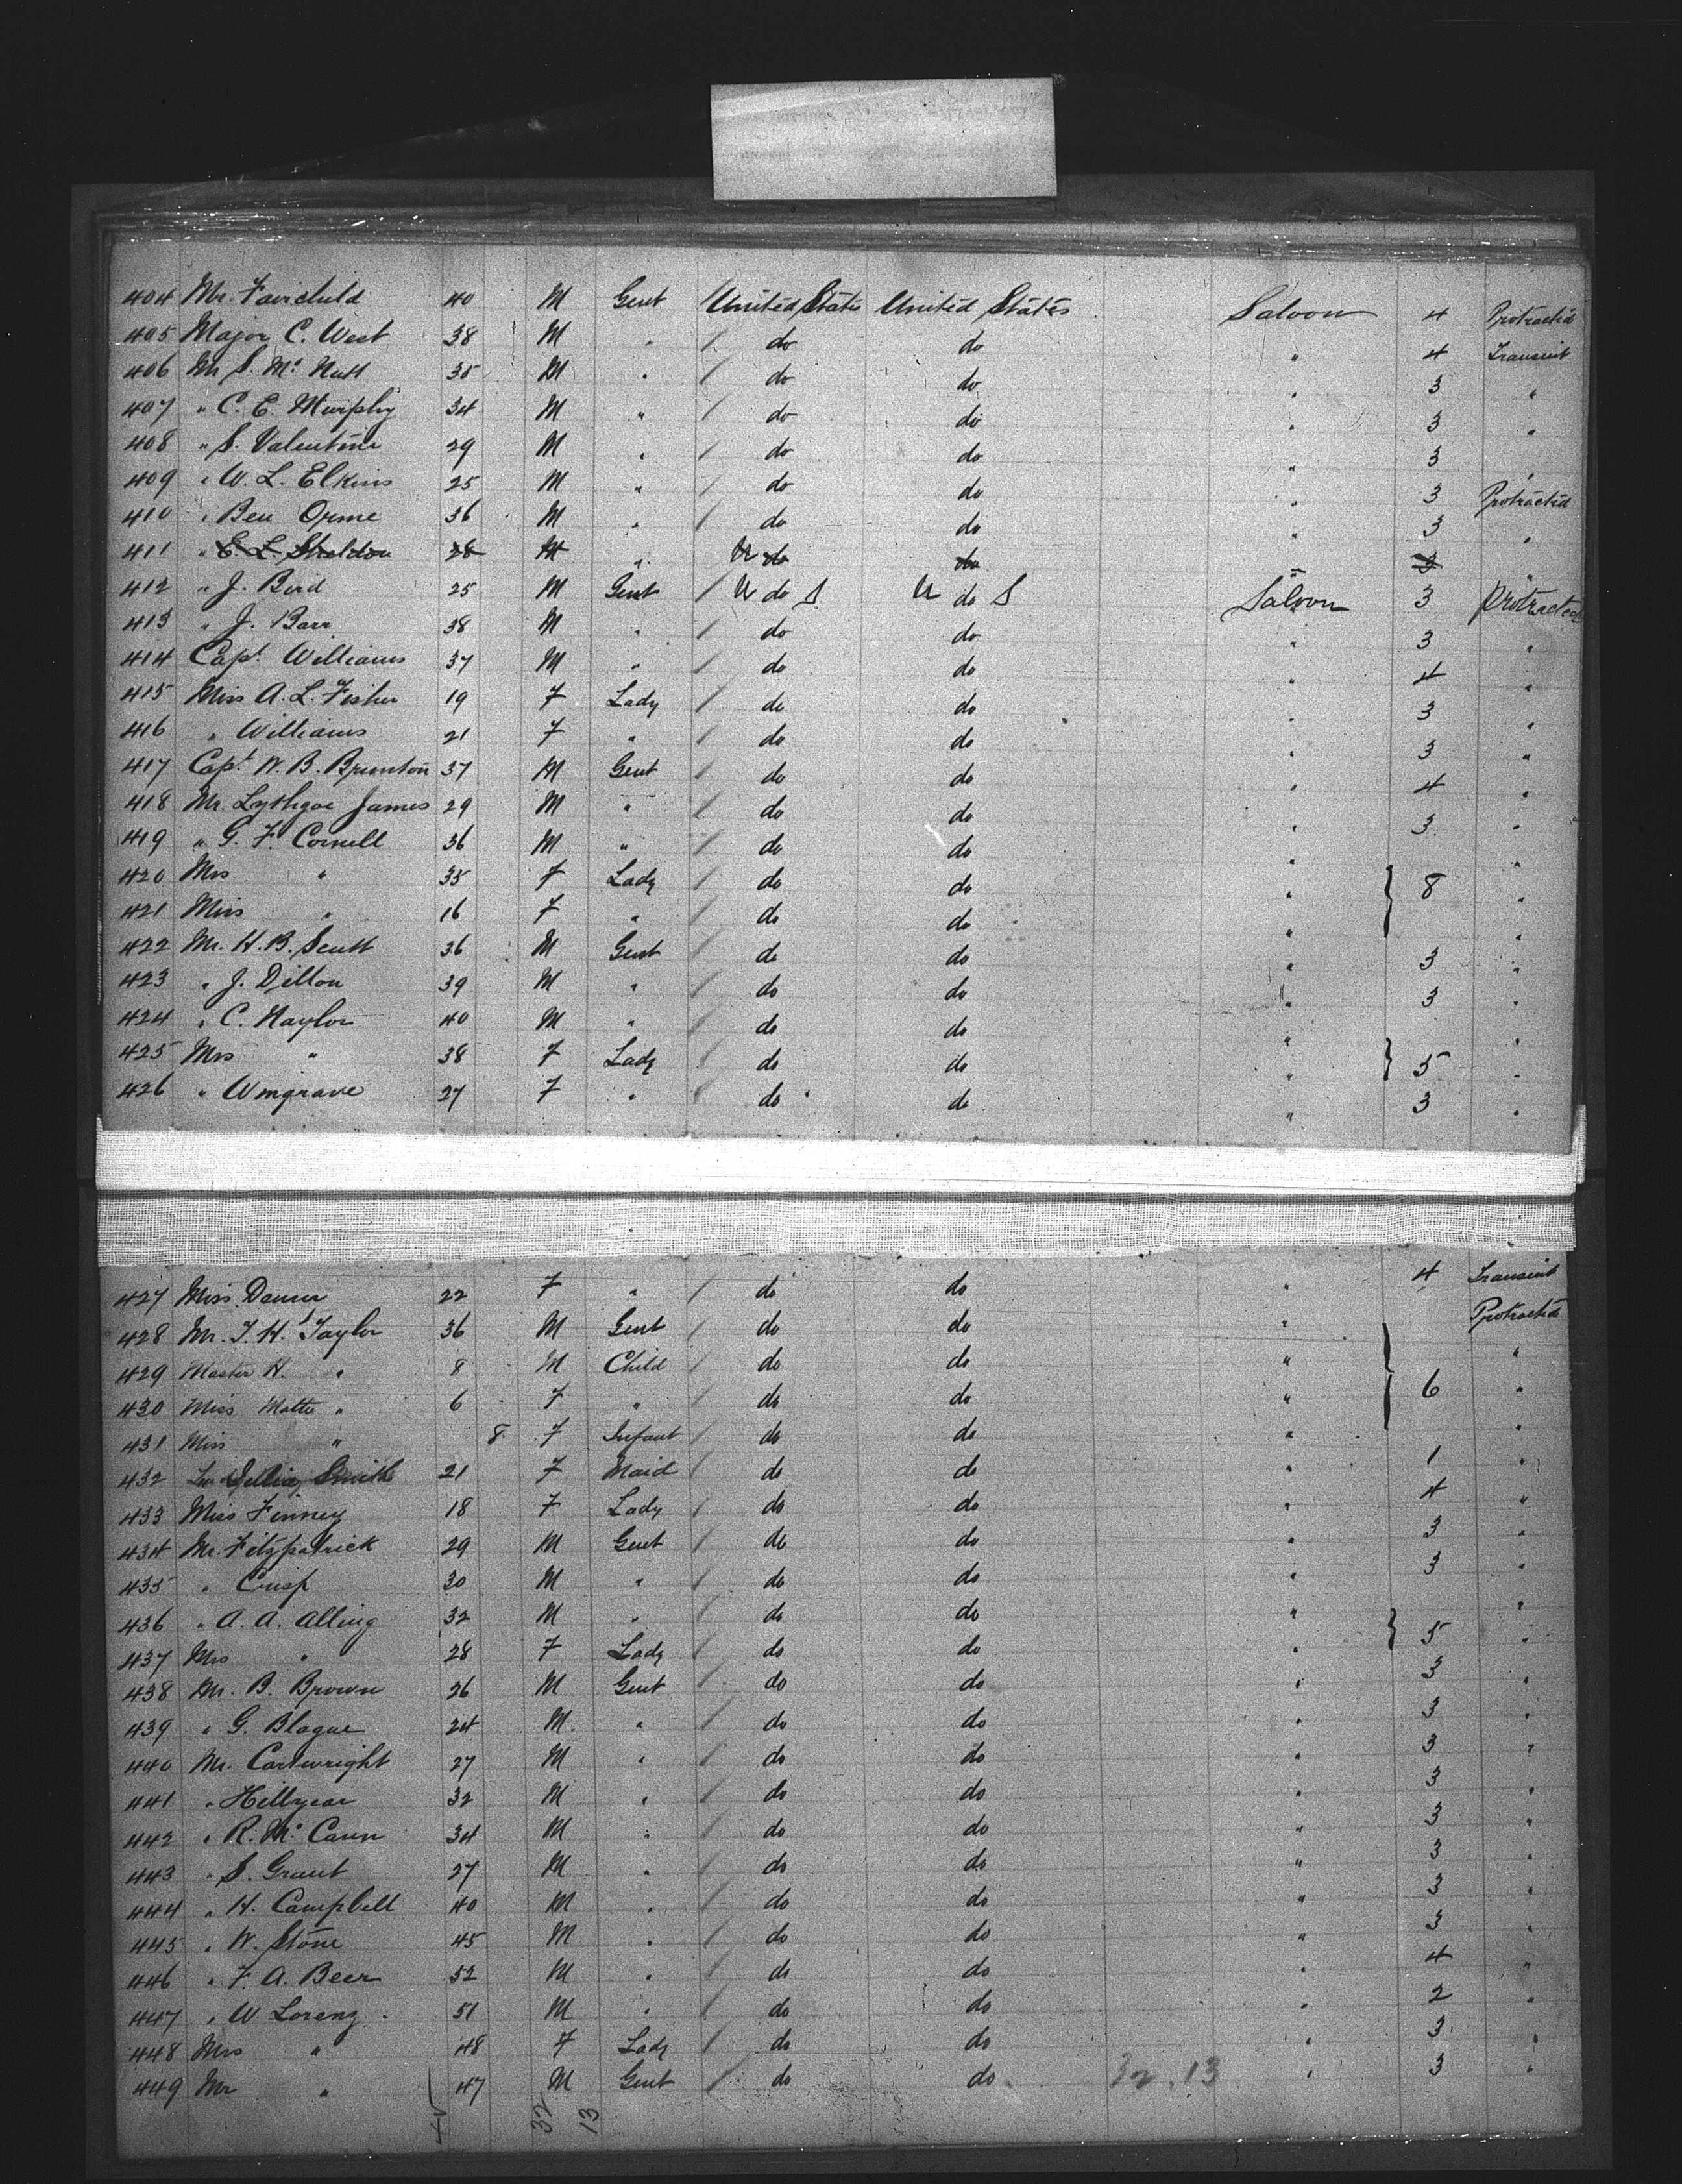 404 Mr. Fairchild 40 M Gent / United States United States Saloon 4 Protracted
405 Major C. West 38 M " / do do " 4 Transient
406 Mr S. Mc Nutt 35 M " / do do " 3 "
407 " C. E. Murphy 34 M " / do do " 3 "
408 " S. Valentine 29 M " / do do " 3 "
409 " W. L. Elkins 25 M " / do do " 3 Protracted
410 " Ben Orme 36 M " / do do " 3 "
411 " E. L. Sheldon 28 M " U do do " 3 "
412 " J. Bird 25 M Gent / U do S U do S Saloon 3 Protracted
413 " J. Barr 38 M " / do do " 3 "
414 Capt Williams 37 M " / do do " 4 "
415 Miss A. L. Fisher 19 F Lady / do do " 3 "
416 " Williams 21 F " / do do " 3 "
417 Capt W. B. Brunton 37 M Gent / do do " 4 "
418 Mr. Lythgoe James 29 M " / do do " 3 "
419 " G. F. Cornell 36 M " / do do " "
420 Mrs " 35 F Lady / do do " } 8 "
421 Miss " 16 F " / do do " "
422 Mr. H. B. Scutt 36 M Gent / do do " 3 "
423 " J. Dillon 39 M " / do do " 3 "
424 " C. Naylor 40 M " / do do " "
425 Mrs " 38 F Lady / do do " } 5 "
426 " Wingrave 27 F " / do do " 3 "
427 Miss 22 F " / do do " 4 Transient
428 Mr. T. H. Taylor 36 M Gent / do do " Protracted
429 Master H. " 8 M Child / do do " } "
430 Miss Mattie " 6 F " / do do " 6 "
431 Miss " 8 F Infant / do do " "
432 Smith 21 F Maid / do do " 1 "
433 Miss Finney 18 F Lady / do do " 4 "
434 Mr. Fitzpatrick 29 M Gent / do do " 3 "
435 " Crisp 30 M " / do do " 3 "
436 " A. A. Alling 32 M " / do do " "
437 Mrs " 28 F Lady / do do " } 5 "
438 Mr. B. Brown 26 M Gent / do do " 3 "
439 " G. Blague 24 M. " / do do " 3 "
440 Mr. Cartwright 27 M " / do do " 3 "
441 " Hillyear 32 M " / do do " 3 "
442 " R. Mc Cann 34 M " / do do " 3 "
443 " S. Grant 27 M " / do do " 3 "
444 " H. Campbell 40 M " / do do " 3 "
445 " W. Stone 45 M " / do do " 3 "
446 " F. A. Beer 52 M " / do do " 4 "
447 " W Lorenz 51 M " / do do " 2 "
448 Mrs " 48 F Lady / do do " 3 "
449 Mr " 47 M Gent / do do 32.13 " 3 "
32 13